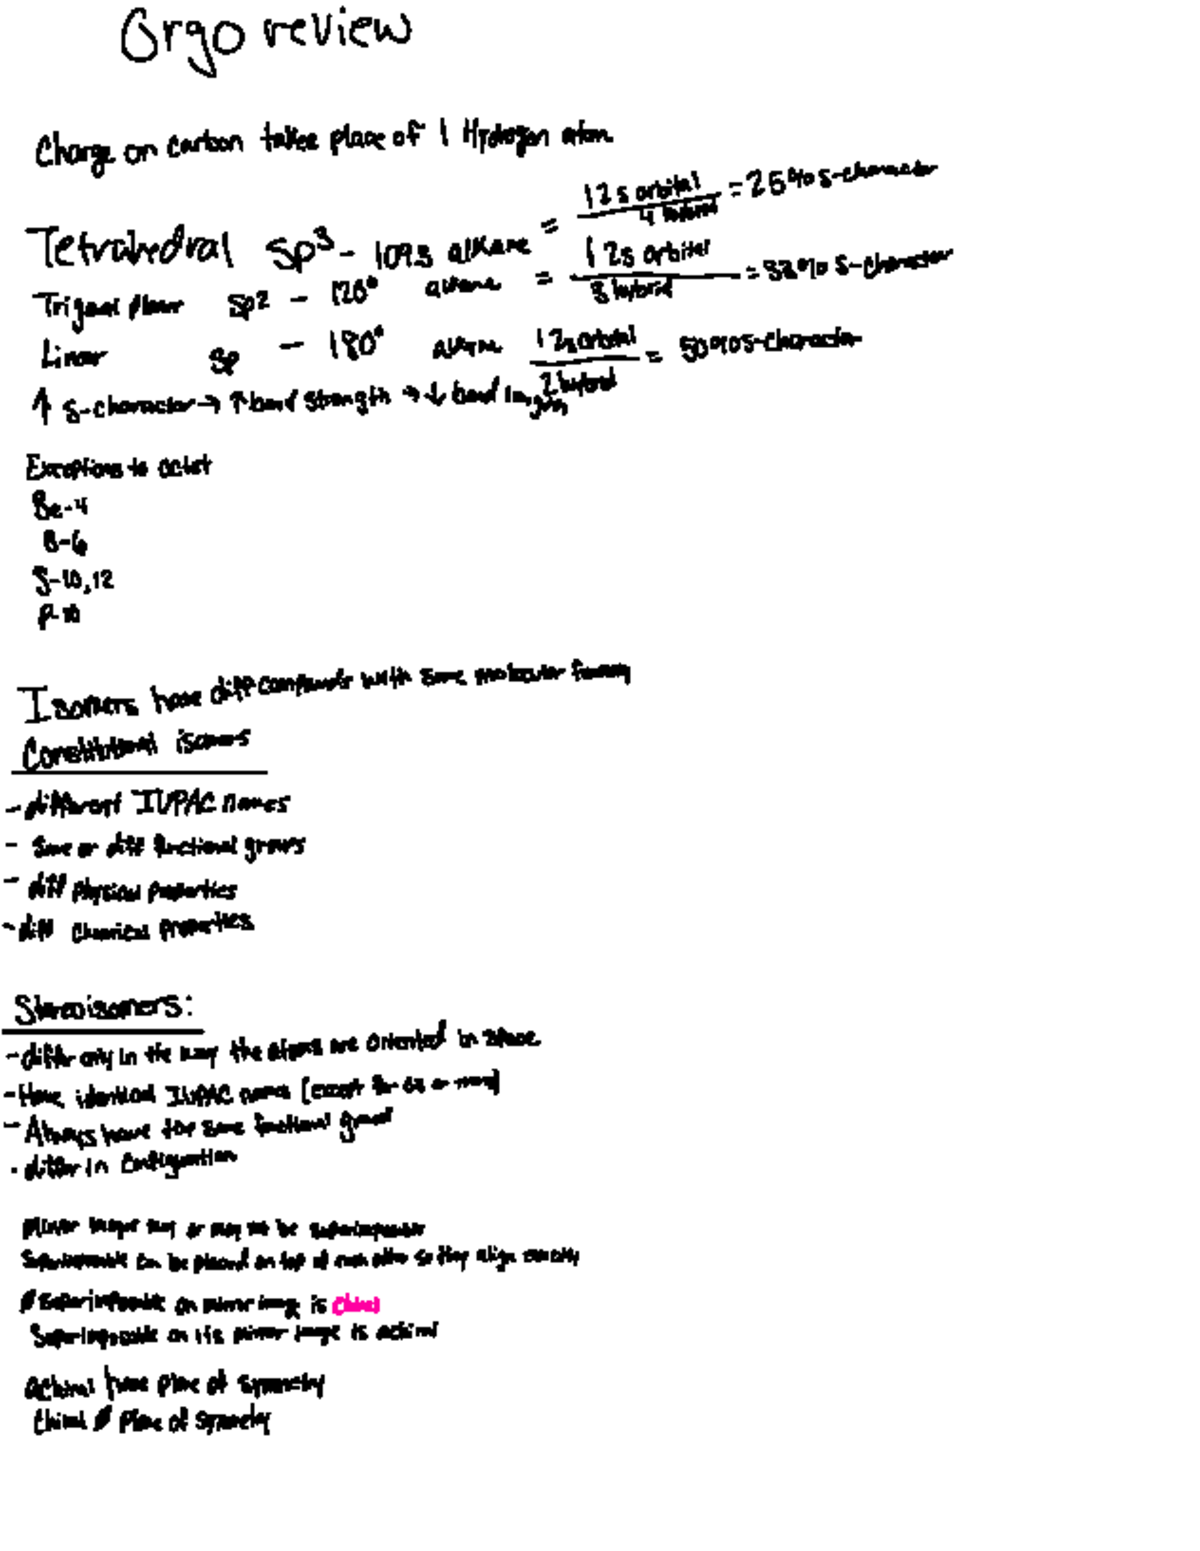 Orgo review
Charge on carbon takes place of 1 Hydrogen atom
Tetrahedral sp³ - 109.5 alkane = 1 2s orbital / 4 hybrid = 25% s-character
Trigonal planar sp² - 120° alkene = 1 2s orbital / 3 hybrid = 33% s-character
Linear sp - 180° alkyne 1 2s orbital / 2 hybrid = 50% s-character
↑ s-character → ↑ bond strength → ↓ bond length
Exceptions to octet
Be-4
B-6
S-10,12
P-10
Isomers have diff compounds with same molecular
Constitutional isomers
- different IUPAC names
- Same or diff functional groups
- diff physical properties
- diff chemical properties
Stereoisomers:
- differ only in the way the atoms are oriented in space.
- Have identical IUPAC names (except for cis or trans)
- Always have the same functional group
. differ in configuration
Mirror image may or may not be superimposable
Superimposable can be placed on top of each other so they align exactly
superimposable on mirror image is chiral
Superimposable on its mirror image is achiral
achiral have plane of symmetry
Chiral plane of symmetry